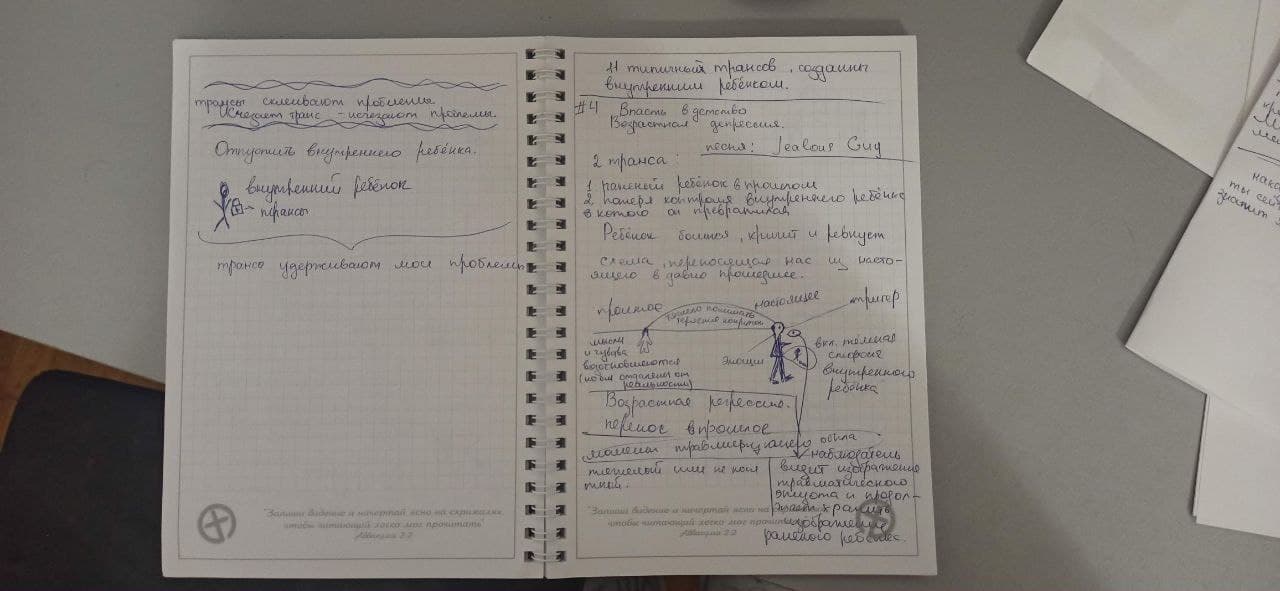 трансы склеивают проблемы
Исчезает транс - исчезают проблемы.
Отпустить внутреннего ребёнка.
внутренний ребёнок
трансы
трансы удерживают мои проблемы
"Запиши видение и начертай ясно на скрижалях,
чтобы читающий легко мог прочитать"
Аввакума 2:2
11 типичный трансов, созданны
внутренним ребёнком.
#4 Впасть в детство
Возрастная депрессия.
песня: Jealous Guy
2 транса:
1 раненый ребёнок в прошлом
2 потеря контроля внутреннего ребёнка
в которого он превратился
Ребёнок боится, кричит и ревнует
схема, переносящая нас из насто-
ящего в давно прошедшее.
прошлое
настоящее
тригер
тяжело понимать
терапия
мысли
и чувства
возобновляются
(но был отдалены от
реальности)
эмоции
вкл. тёмная
сторона
внутреннего
ребёнка
Возрастная регрессия.
перенос в прошлое
момент травмирующего опыта
тяжелый или не
тный.
наблюдатель
видит изображение
травматического
эпизота и продол-
жает хранить
изображение
раненого ребёнка.
"Запиши видение и начертай ясно на
чтобы читающий легко мог прочитать"
Аввакума 2:2